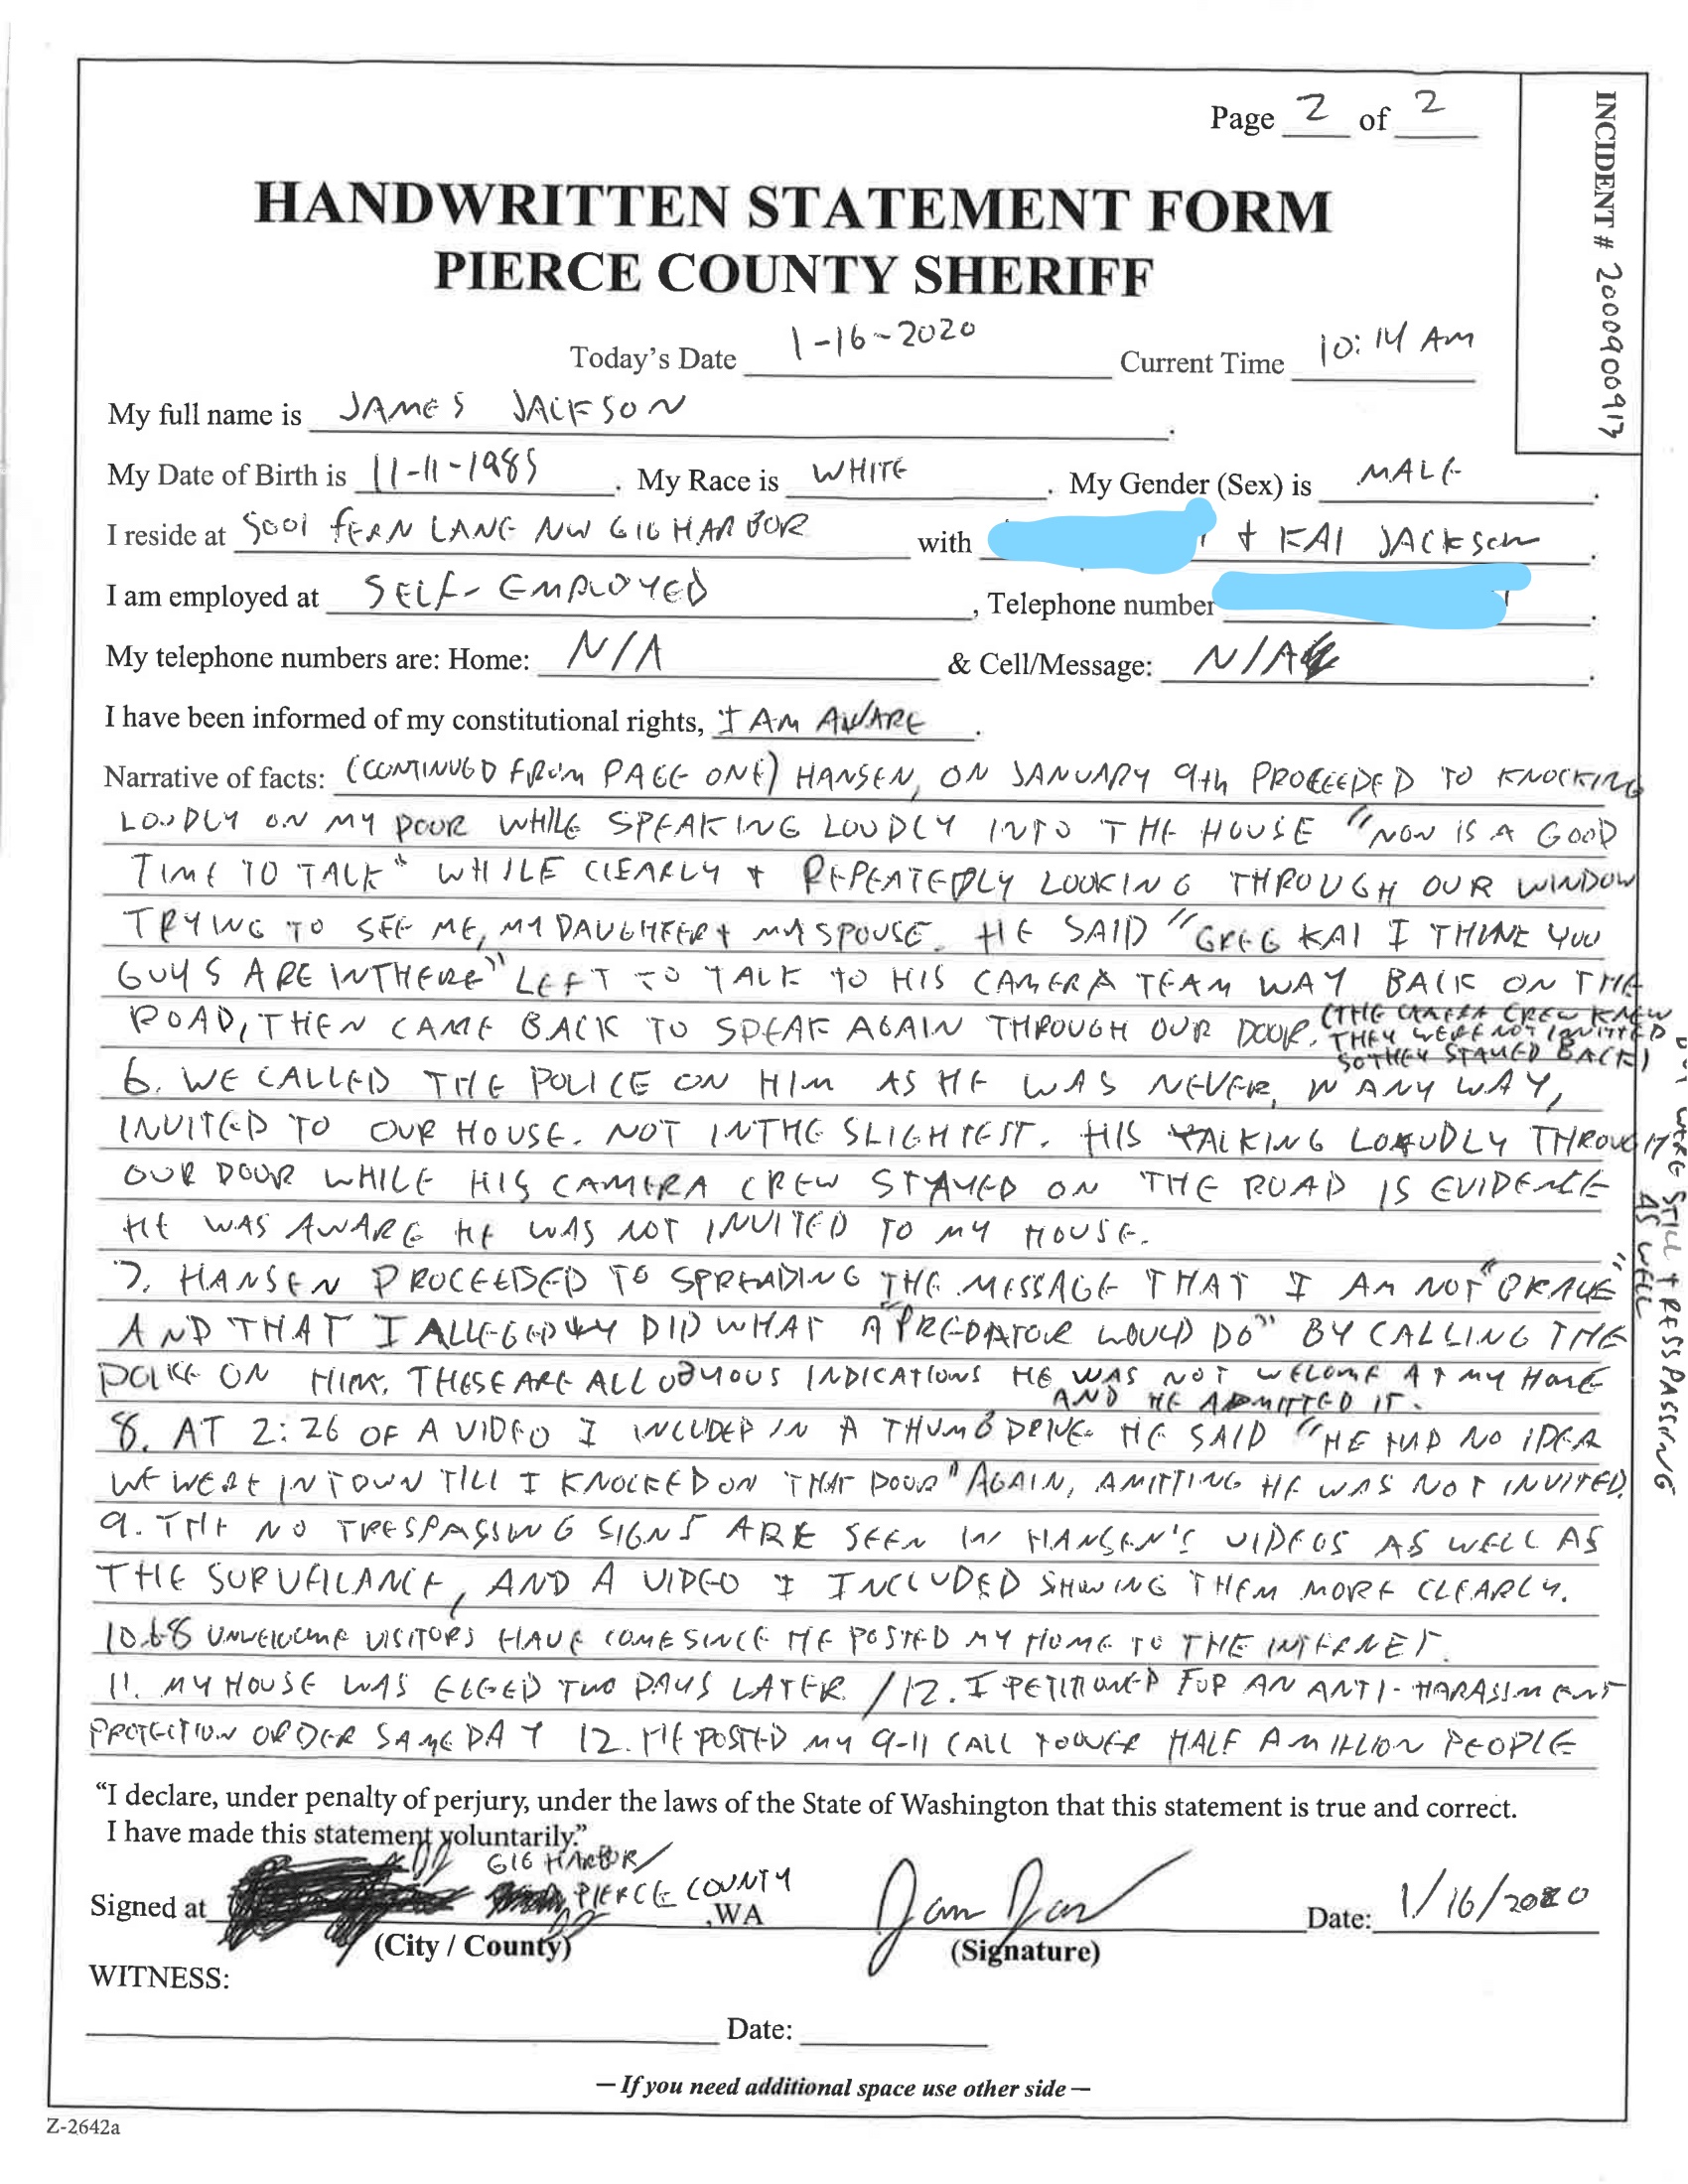 Page 2 of 2
INCIDENT # 2000900917
HANDWRITTEN STATEMENT FORM
PIERCE COUNTY SHERIFF
Today's Date 1-16-2020 Current Time 10:14 AM
My full name is JAMES JACKSON.
My Date of Birth is 11-11-1985. My Race is WHITE. My Gender (Sex) is MALE.
I reside at 5001 FERN LANE NW GIG HARBOR with + KAI JACKSON.
I am employed at SELF-EMPLOYED, Telephone number
My telephone numbers are: Home: N/A & Cell/Message: N/A.
I have been informed of my constitutional rights, I AM AWARE.
Narrative of facts: (CONTINUED FROM PAGE ONE) HANSEN, ON JANUARY 9th PROCEEDED TO KNOCKING
LOUDLY ON MY DOOR WHILE SPEAKING LOUDLY INTO THE HOUSE "NOW IS A GOOD
TIME TO TALK" WHILE CLEARLY + REPEATEDLY LOOKING THROUGH OUR WINDOW
TRYING TO SEE ME, MY DAUGHTER + MY SPOUSE. HE SAID "GREG KAI I THINK YOU
GUYS ARE IN THERE" LEFT TO TALK TO HIS CAMERA TEAM WAY BACK ON THE
ROAD, THEN CAME BACK TO SPEAK AGAIN THROUGH OUR DOOR. (THE CAMERA CREW KNEW
THEY WERE NOT INVITED
SO THEY STAYED BACK)
BUT WERE STILL TRESSPASSING
AS WELL
6. WE CALLED THE POLICE ON HIM AS HE WAS NEVER, IN ANY WAY,
INVITED TO OUR HOUSE. NOT IN THE SLIGHTEST. HIS TALKING LOUDLY THROUGH
OUR DOOR WHILE HIS CAMERA CREW STAYED ON THE ROAD IS EVIDENCE
HE WAS AWARE HE WAS NOT INVITED TO MY HOUSE.
7. HANSEN PROCEEDED TO SPREADING THE MESSAGE THAT I AM NOT "BRAVE"
AND THAT I ALLEGEDLY DID WHAT A "PREDATOR WOULD DO" BY CALLING THE
POLICE ON HIM. THESE ARE ALL OBVIOUS INDICATIONS HE WAS NOT WELCOME AT MY HOME
AND HE ADMITTED IT.
8. AT 2:26 OF A VIDEO I INCLUDED IN A THUMB DRIVE HE SAID "HE HAD NO IDEA
WE WERE IN TOWN TILL I KNOCKED ON THAT DOOR" AGAIN, AMITTING HE WAS NOT INVITED.
9. THE NO TRESPASSING SIGNS ARE SEEN IN HANSEN'S VIDEOS AS WELL AS
THE SURVEILANCE, AND A VIDEO I INCLUDED SHOWING THEM MORE CLEARLY.
10. 68 UNWELCOME VISITORS HAVE COME SINCE HE POSTED MY HOME TO THE INTERNET.
11. MY HOUSE WAS EGGED TWO DAYS LATER. / 12. I PETITIONED FOR AN ANTI-HARASSMENT
PROTECTION ORDER SAME DAY 12. HE POSTED MY 9-11 CALL TO OVER HALF A MILLION PEOPLE
"I declare, under penalty of perjury, under the laws of the State of Washington that this statement is true and correct.
I have made this statement voluntarily."
GIG HARBOR/
Signed at PIERCE COUNTY, WA Date: 1/16/2020
(City / County) (Signature)
WITNESS:
Date:
— If you need additional space use other side —
Z-2642a